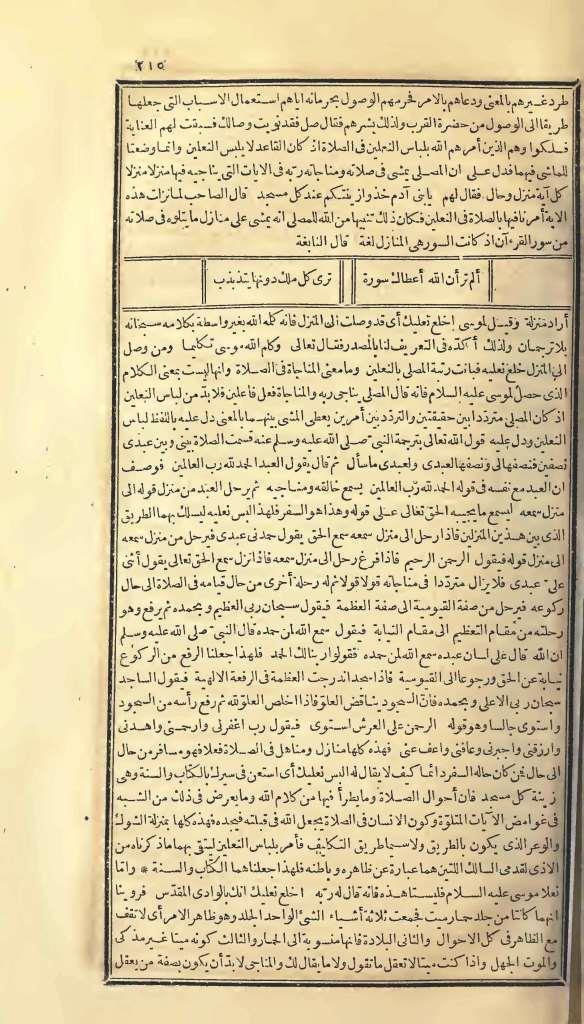 ٢١٥
طرد غيرهم بالمعنى ودعاهم بالامر فحرمهم الوصول بحرمانه اياهم استعمال الاسباب التى جعلها
طريقا الى الوصول من حضرة القرب ولذلك بشرهم فقال صل فقد نويت وصالك فسبقت لهم العناية
فسلكوا وهم الذين أمرهم الله بلباس النعلين فى الصلاة اذ كان القاعد لا يلبس النعلين وانما وضعتا
للماشى فيهما فدل على ان المصلى يمشى فى صلاته ومناجاته ربه فى الايات التى يناجيه فيها منزلا منزلا
كل آية منزل وحال فقال لهم يابنى آدم خذوا زينتكم عند كل مسجد قال الصاحب لما نزلت هذه
الاية أمرنا فيها بالصلاة فى النعلين فكان ذلك تنبيها من الله للمصلى انه يمشى على منازل ما يتلوه فى صلاته
من سور القرءآن اذ كانت السور هى المنازل لغة قال النابغة
ألم تر أن الله أعطاك سورة ترى كل ملك دونها يتذبذب
أراد منزلة وقيل لموسى إخلع نعليك أى قد وصلت الى المنزل فانه كله الله بغير واسطة بكلامه سبحانه
بلا ترجمان ولذلك أكده فى التعريف لنا بالمصدر فقال تعالى وكلم الله موسى تكليما ومن وصل
الى المنزل خلع نعليه فبانت رتبة المصلى بالنعلين وما معنى المناجاة فى الصلاة وانها ليست بمعنى الكلام
الذى حصل لموسى عليه السلام فانه قال المصلى يناجى ربه والمناجاة فعل فاعلين فلا بد من لباس النعلين
اذ كان المصلى مترددا بين حقيقتين والتردد بين أمرين يعطى المشى بينهما بالمعنى دل عليه باللفظ لباس
النعلين ودل عليه قول الله تعالى بترجمة النبى صلى الله عليه وسلم عنه قسمت الصلاة بينى وبين عبدى
نصفين فنصفها لى ونصفها لعبدى ولعبدى ما سأل ثم قال يقول العبد الحمد لله رب العالمين فوصف
ان العبد مع نفسه فى قوله الحمد لله رب العالمين يسمع خالقه ومناجيه ثم يرحل العبد من منزل قوله الى
منزل سمعه ليسمع ما يجيبه الحق تعالى على قوله وهذا هو السفر فلهذا لبس نعليه ليسلك بهما الطريق
الذى بين هذين المنزلين فاذا رحل الى منزل سمعه سمع الحق يقول حمدنى عبدى فيرحل من منزل سمعه
الى منزل قوله فيقول الرحمن الرحيم فاذا فرغ رحل الى منزل سمعه فاذا نزل سمع الحق تعالى يقول أثنى
على عبدى فلا يزال مترددا فى مناجاته قولا قولا ثم له رحلة أخرى من حال قيامه فى الصلاة الى حال
ركوعه فيرحل من صفة القيومية الى صفة العظمة فيقول سبحان ربى العظيم وبحمده ثم يرفع وهو
رحلته من مقام التعظيم الى مقام النيابة فيقول سمع الله لمن حمده قال النبى صلى الله عليه وسلم
ان الله قال على لسان عبده سمع الله لمن حمده فقولوا ربنا لك الحمد فلهذا جعلنا الرفع من الركوع
نيابة عن الحق ورجوعا الى القيومية فاذا سجد اندرجت العظمة فى الرفعة الالهية فيقول الساجد
سبحان ربى الاعلى وبحمده فان السجود يناقض العلو فاذا اخلص العلو لله ثم رفع رأسه من السجود
واستوى جالسا وهو قوله الرحمن على العرش استوى فيقول رب اغفرلى وارحمنى واهدنى
وارزقنى واجبرنى وعافنى واعف عنى فهذه كلها منازل ومناهل فى الصلاة فعلا فهو مسافر من حال
الى حال فمن كان حاله السفر دائما كيف لا يقال له البس نعليك أى استعن فى سيرك بالكتاب والسنة وهى
زينة كل مسجد فان أحوال الصلاة وما يطرأ فيها من كلام الله وما يعرض فى ذلك من الشبه
فى غوامض الآيات المتلوة وكون الانسان فى الصلاة يجعل الله فى قبلته فيجده فهذه كلها بمنزلة الشوك
والوعر الذى يكون بالطريق ولا سيما طريق التكليف فأمر بلباس النعلين ليتقى بهما ما ذكرناه من
الاذى لقدمى السالك اللتين هما عبارة عن ظاهره وباطنه فلهذا جعلناهما الكتاب والسنة * واما
نعلا موسى عليه السلام فليستا هذه فانه قال له ربه اخلع نعليك انك بالوادى المقدس فروينا
انهما كانتا من جلد حمار ميت فجمعت ثلاثة أشياء الشئ الواحد الجلد وهو ظاهر الامر أى لا تقف
مع الظاهر فى كل الاحوال والثانى البلادة فانها منسوبة الى الحمار والثالث كونه ميتا غير مذكى
والموت الجهل واذا كنت ميتا لا تعقل ما تقول ولا ما يقال لك والمناجى لا بد أن يكون بصفة من يعقل